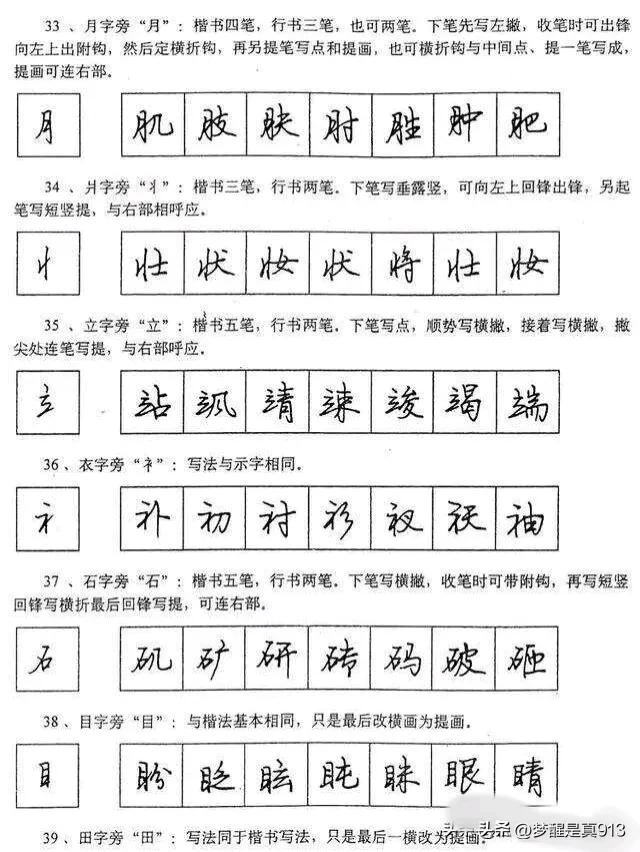 33、月字旁“月”：楷书四笔，行书三笔，也可两笔。下笔先写左撇，收笔时可出锋
向左上出附钩，然后定横折钩，再另提笔写点和提画，也可横折钩与中间点、提一笔写成，
提画可连右部。
月 肌 肢 肤 肘 胜 肿 肥
34、爿字旁“丬”：楷书三笔，行书两笔。下笔写垂露竖，可向左上回锋出锋，另起
笔写短竖提，与右部相呼应。
丬 壮 状 妆 状 将 壮 妆
35、立字旁“立”：楷书五笔，行书两笔。下笔写点，顺势写横撇，接着写横撇，撇
尖处连笔写提，与右部呼应。
立 站 飒 靖 竦 竣 竭 端
36、衣字旁“衤”：写法与示字相同。
衤 补 初 衬 衫 衩 袄 袖
37、石字旁“石”：楷书五笔，行书两笔。下笔写横撇，收笔时可带附钩，再写短竖
回锋写横折最后回锋写提，可连右部。
石 矶 矿 研 砖 码 破 砸
38、目字旁“目”：与楷法基本相同，只是最后改横画为提画。
目 盼 眨 眩 盹 眯 眼 睛
39、田字旁“田”：写法同于楷书写法，只是最后一横改为提画。
头条 @梦醒是真913